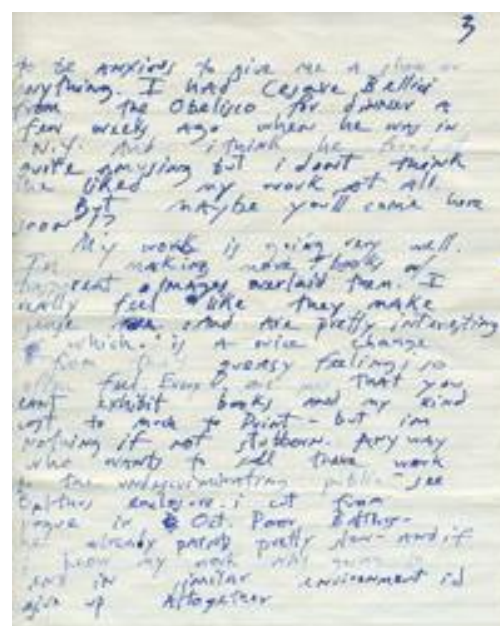 3
to be anxious to give me a show or
anything. I had Cesare Bellici
from the Obelisco for dinner a
few weeks ago when he was in
N.Y. And i think he
quite amusing but i dont think
he liked my work at all.
But maybe you'll come here
soon??
My work is going very well.
I'm making more books w/
images overlaid them. I
really feel like they make
sense and are pretty interesting
which is a nice change
from queasy feelings so
often feel. Every me that you
cant exhibit books and my kind
cost to much to print - but im
nothing if not stubborn. Anyway
who wants to sell there work
to the undiscriminating public - see
Balthus enclosure. i cut from
vogue in Oct. Poor Balthus -
he already paints pretty slow - and if
i knew my work was
end in similar environment id
give up altogether